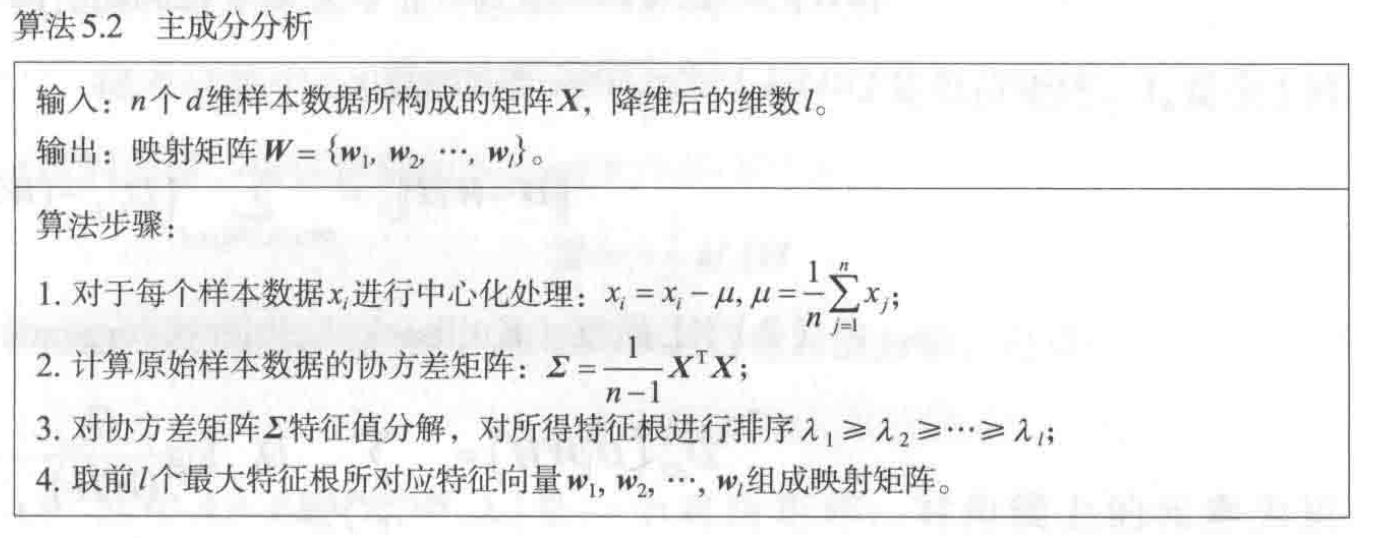 算法5.2 主成分分析
输入：n个d维样本数据所构成的矩阵X，降维后的维数l。
输出：映射矩阵W = {w₁, w₂, ⋯, wₗ}。
算法步骤：
1. 对于每个样本数据xᵢ进行中心化处理：xᵢ = xᵢ − μ, μ = \frac{1}{n}\sum_{j=1}^{n} xⱼ;
2. 计算原始样本数据的协方差矩阵：Σ = \frac{1}{n−1} XᵀX;
3. 对协方差矩阵Σ特征值分解，对所得特征根进行排序λ₁ ⩾ λ₂ ⩾ ⋯ ⩾ λₗ;
4. 取前l个最大特征根所对应特征向量w₁, w₂, ⋯, wₗ组成映射矩阵。